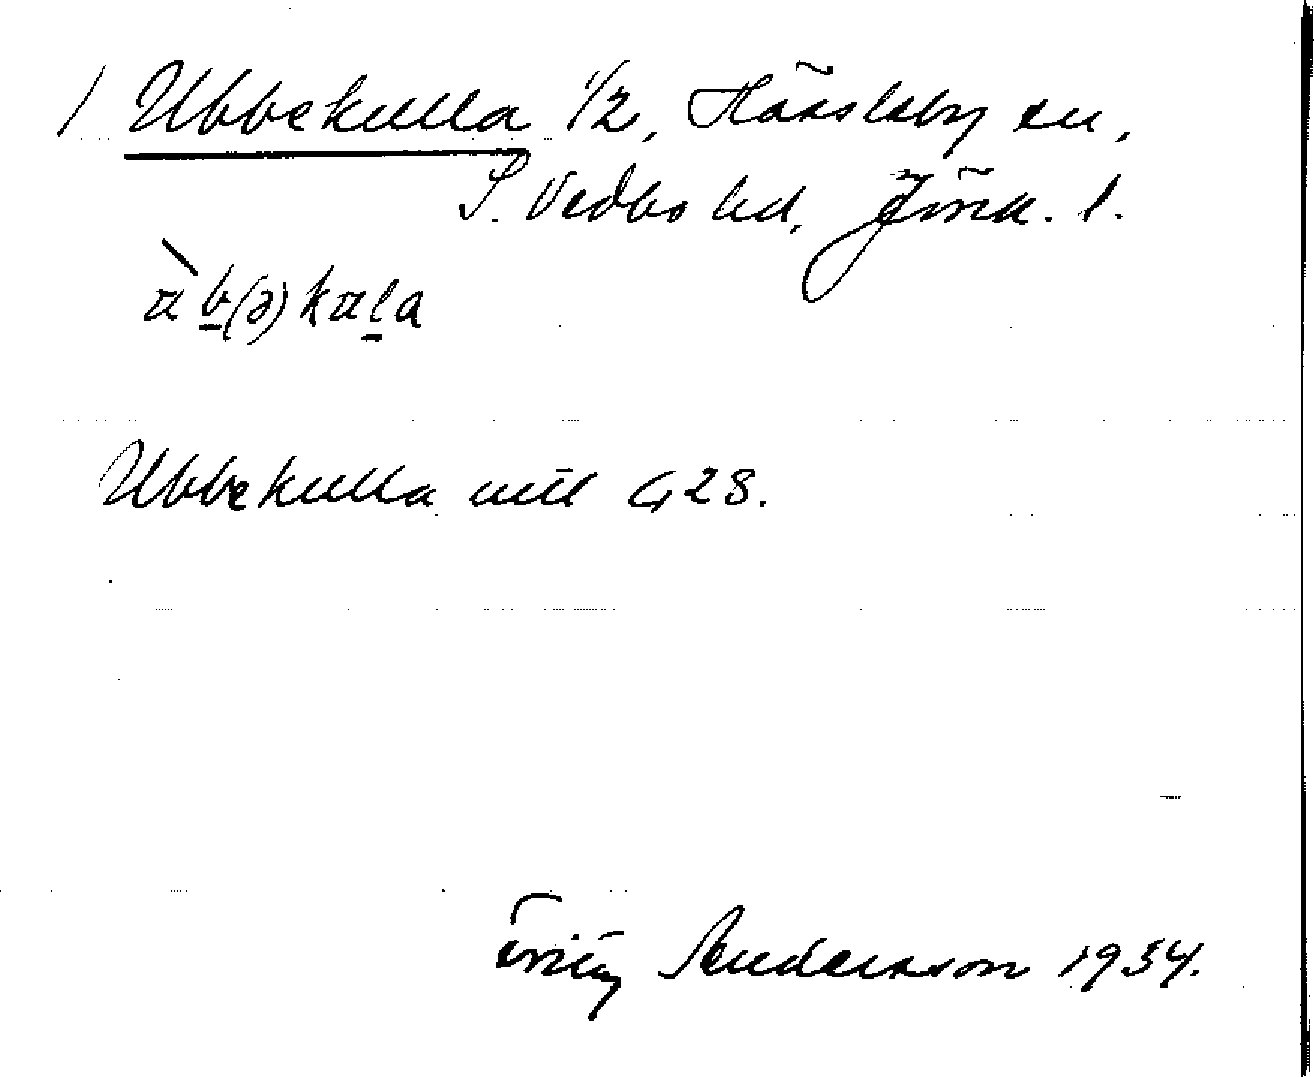 1 Ubbekulla 1/2, Hässleby sn,
S. Vedbo hd, Jönk. l.
àb(ə)kala
Ubbekulla utl G 28.
Fritz Anderson 1934.